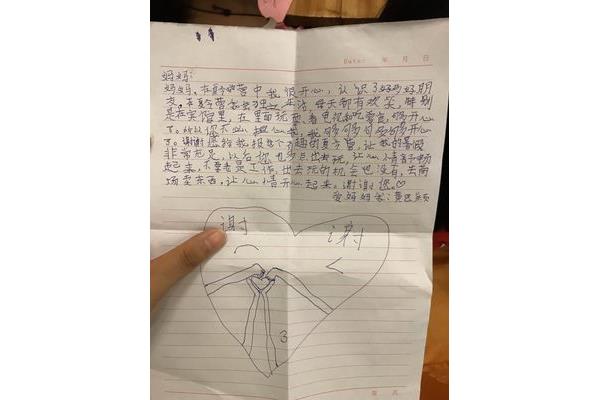 Date: 年 月 日
妈妈:
妈妈,在夏令营中我很开心,认识了好多好朋
友,在夏令营我学独立生活,每天都有欢笑,特别
是在宾馆里,在里面玩,看电视和吃零食,够开心
了。所以你不必担心我,我够够够够够够开心
了。谢谢您给我报这个有趣的夏令营,让我的暑假
非常充足,以后你也多出去玩,让心情舒畅
起来,不要老是工作,出去玩的机会也没有,去商
场坐东西,让心情开心起来。谢谢您。♡
爱妈妈的:黄
谢 谢
第 页